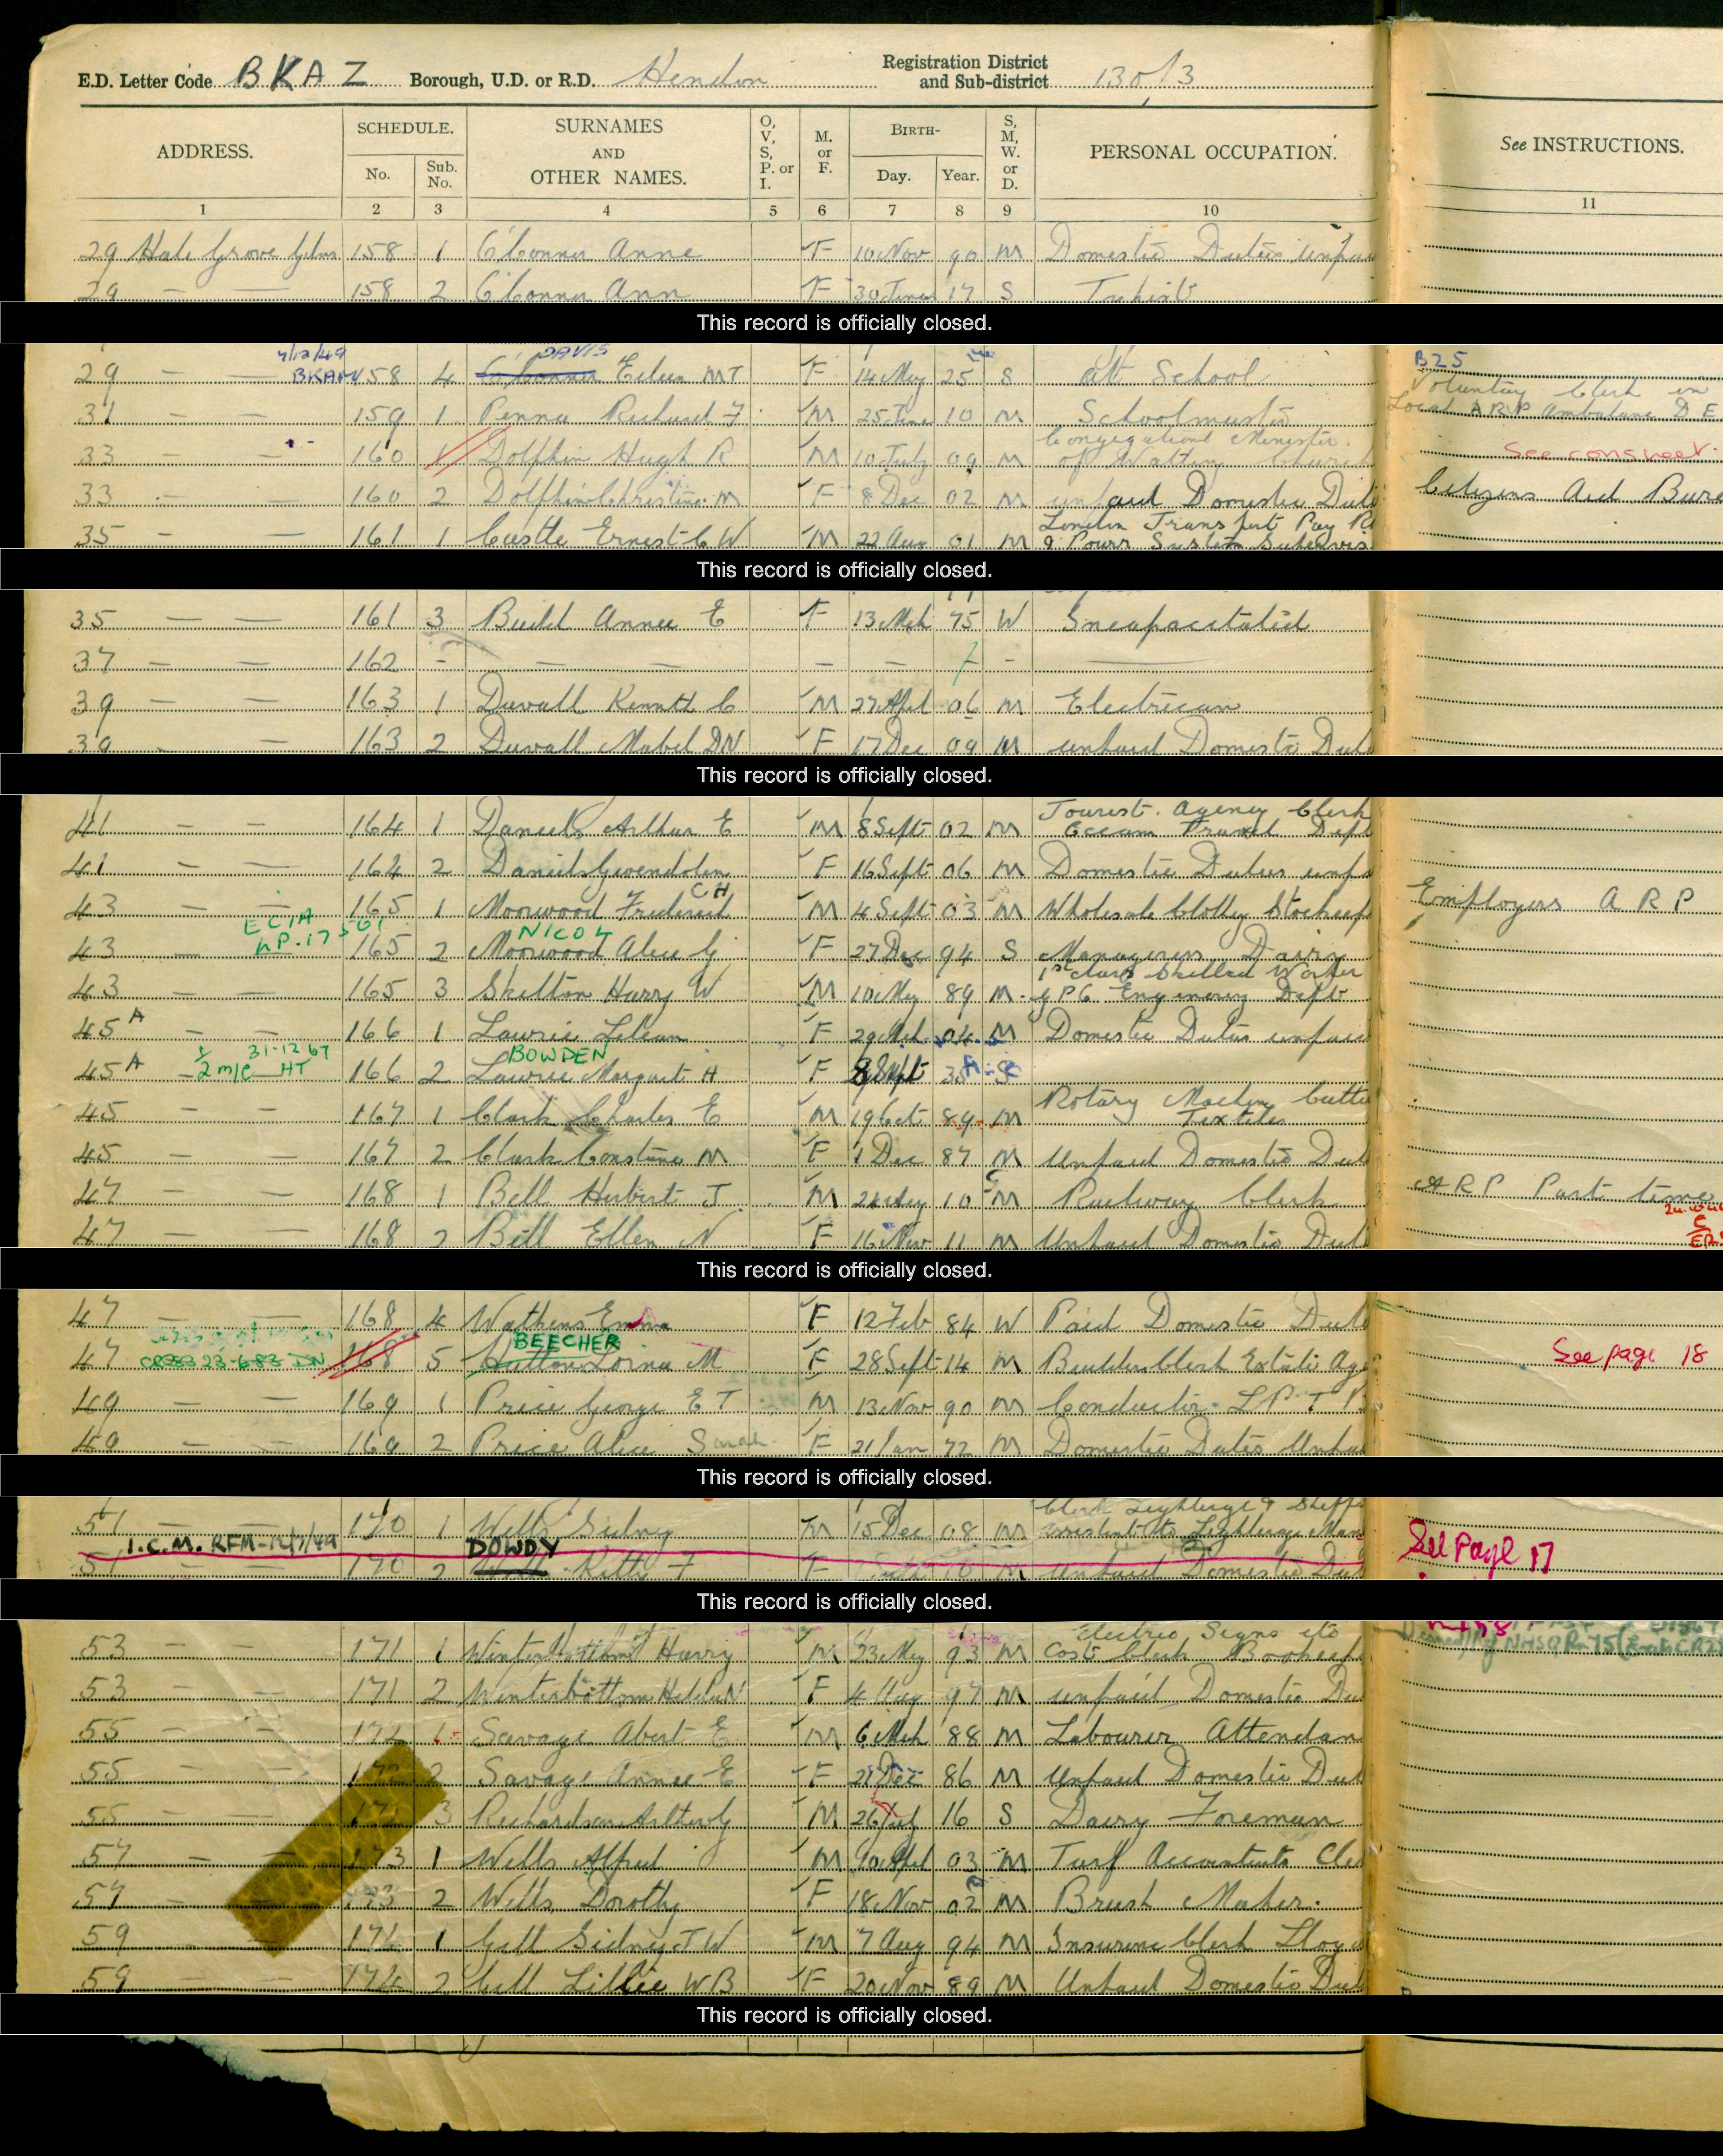 E.D. Letter Code BKAZ Borough, U.D. or R.D. Hendon Registration District and Sub-district 130/3
ADDRESS. SCHEDULE. No. Sub. No. SURNAMES AND OTHER NAMES. O, V, S, P. or I. M. or F. BIRTH- Day. Year. S, M, W. or D. PERSONAL OCCUPATION. See INSTRUCTIONS.
1 2 3 4 5 6 7 8 9 10 11
29 Hale Grove Gdns 158 1 O'Connor Anne F 10 Nov 90 M Domestic Duties unpaid
29 — — 158 2 O'Connor Ann F 30 June 17 S Typist
This record is officially closed.
7/12/49 DAVIS B25
29 — — BKAW 158 4 O'Connor Eileen MT F 14 May 25 S At School
Voluntary Clerk in
31 — — 159 1 Penna Richard F M 25 June 10 M Schoolmaster Local ARP Ambulance D E
Congregational Minister
33 — — 160 1 Dolphin Hugh R M 10 July 09 M of Watling Church See cons sheet.
33 — — 160 2 Dolphin Christine M F 8 Dec 02 M unpaid Domestic Duti Citizens Aid Bure
London Transport Pay R
35 — — 161 1 Castle Ernest C W M 22 Aug 01 M & Powr System Supervis
This record is officially closed.
35 — — 161 3 Budd Annie E F 13 Mch 75 W Incapacitated
37 — — 162 - — — — — -
39 — — 163 1 Duvall Kenneth C M 27 Apl 06 M Electrician
39 — 163 2 Duvall Mabel DN F 17 Dec 09 M unpaid Domestic Duti
This record is officially closed.
Tourist Agency Clerk
41 — — 164 1 Daniels Arthur E M 8 Sept 02 M Ocean Travel Dept
41 — — 164 2 Daniels Gwendolen F 16 Sept 06 M Domestic Duties unpa
CH
43 — — 165 1 Moorwood Frederick M 4 Sept 03 M Wholesale Clothg Stockeep Employers ARP
ECIA NP.17501 NICOL
43 — 165 2 Moorwood Alice G F 27 Dec 94 S Manageress Dairy
1st class Skilled Worker
43 — — 165 3 Skelton Harry W M 10 May 89 M GPO Enginery Dept
45A — — 166 1 Lawrie Lilian F 29 Mch 04 M Domestic Duties unpaid
31-12-67 BOWDEN
45A 2 m/c HT 166 2 Lawrie Margaret H F 8 Sept 38 S
Rotary Machin Cutte
45 — — 167 1 Clark Charles E M 19 Oct 89 M Textiles
45 — — 167 2 Clark Constance M F 1 Dec 87 M Unpaid Domestic Dut
47 — — 168 1 Bell Herbert J M 24 Aug 10 M Railway Clerk ARP Part time
47 — — 168 2 Bell Ellen N F 16 Nov 11 M Unpaid Domestic Duti
This record is officially closed.
47 — — 168 4 Wathens Emma F 12 Feb 84 W Paid Domestic Duti
BEECHER
47 CR283 23-6-83 DN 168 5 Hutton Lorna M F 28 Sept 14 M Builders Clerk Estate Age See page 18
49 — — 169 1 Price George E T M 13 Nov 90 M Conductor L P T B
49 — — 169 2 Price Alice Sarah F 21 Jan 72 M Domestic Duties Unpai
This record is officially closed.
Clerk Lighterage & Shippi
51 — — 170 1 Wells Sidney M 15 Dec 08 M assistant to Lighterage Man
I.C.M. RFM-12/7/49 DOWDY See Page 17
51 — 170 2 Kitty F F 10 M unpaid Domestic Dut
This record is officially closed.
Electric Signs etc
53 — — 171 1 Winterbottom Harry M 23 May 93 M Cost Clerk Bookeep
53 — — 171 2 Winterbottom Hilda N F 4 Aug 97 M unpaid Domestic Du
55 — — 172 1 Savage Abert E M 6 Mch 88 M Labourer Attendan
55 — — 172 2 Savage Annie E F 21 Dec 86 M Unpaid Domestic Dut
55 — — 172 3 Richardson Arthur G M 26 July 16 S Dairy Foreman
57 — — 173 1 Wells Alfred M 9 Apl 03 M Turf Accountants Cle
57 — — 173 2 Wells Dorothy F 18 Nov 02 M Brush Maker
59 — — 174 1 Gell Sidney J W M 7 Aug 94 M Insurance Clerk Lloy
59 — — 174 2 Gell Lillie WB F 20 Nov 89 M Unpaid Domestic Dut
This record is officially closed.